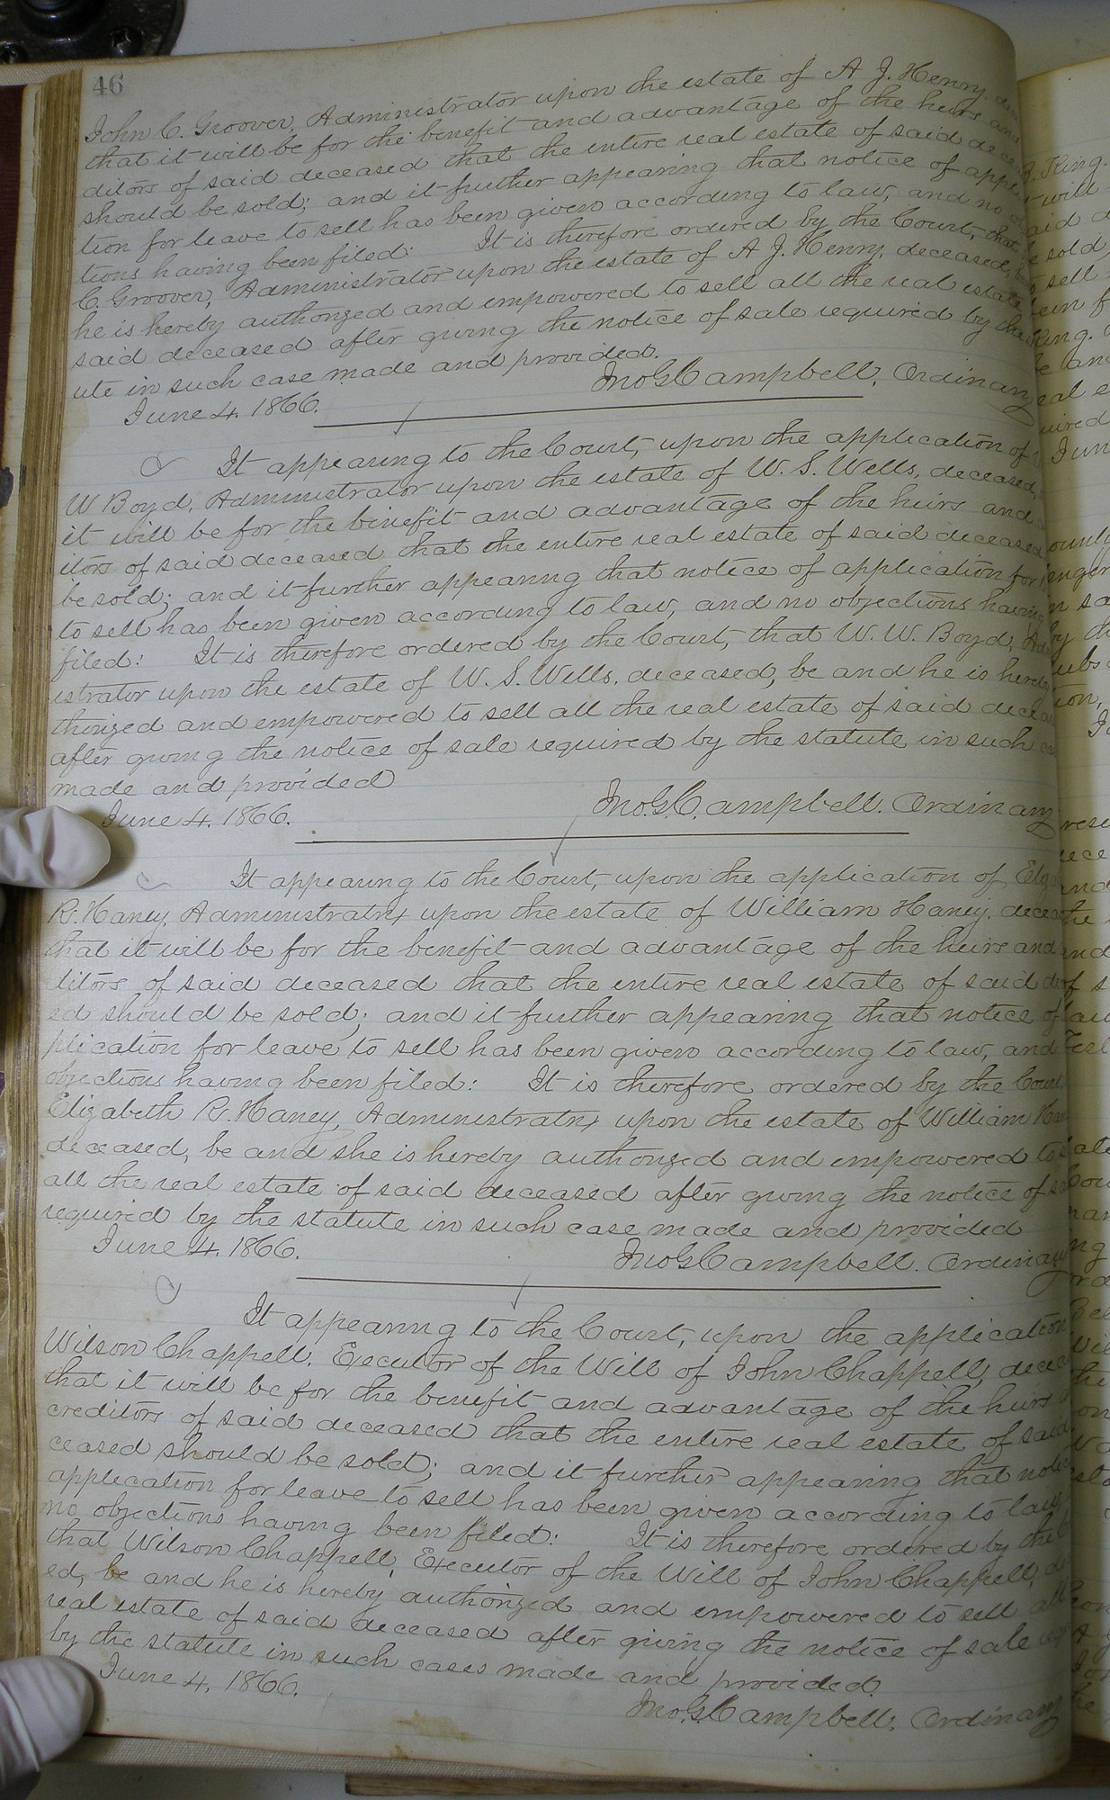 46
John C. Groover, Administrator upon the estate of A J. Henry,
that it will be for the benefit and advantage of the heirs and
ditors of said deceased that the entire real estate of said dece
should be sold; and it further appearing that notice of appli
tion for leave to sell has been given according to law, and no
tions having been filed: It is therefore ordered by the Court, that
C. Groover, Administrator upon the estate of A J. Henry, deceased,
he is hereby authorized and empowered to sell all the real estate
said deceased after giving the notice of sale required by the
ute in such case made and provided.
Jno. G. Campbell, Ordinary
June 4. 1866.
It appearing to the Court, upon the application of
W Boyd, Administrator upon the estate of W. S. Wells, deceased,
it will be for the benefit and advantage of the heirs and
itors of said deceased that the entire real estate of said deceased
be sold; and it further appearing that notice of application for
to sell has been given according to law, and no objections having
filed: It is therefore ordered by the Court, that W. W. Boyd,
istrator upon the estate of W. S. Wells, deceased, be and he is hereby
thorized and empowered to sell all the real estate of said decea
after giving the notice of sale required by the statute in such
made and provided
Jno. G. Campbell. Ordinary
June 4. 1866.
It appearing to the Court, upon the application of Eliz
R. Haney, Administratrix upon the estate of William Haney, decea
that it will be for the benefit and advantage of the heirs and
ditors of said deceased that the entire real estate of said de
ed should be sold; and it further appearing that notice of
plication for leave to sell has been given according to law, and
objections having been filed: It is therefore ordered by the Court
Elizabeth R. Haney, Administratrix upon the estate of William Han
deceased, be and she is hereby authorized and empowered to
all the real estate of said deceased after giving the notice of
required by the statute in such case made and provided
June 4. 1866.
Jno. G. Campbell. Ordinary
It appearing to the Court, upon the application
Wilson Chappell, Executor of the Will of John Chappell, decea
that it will be for the benefit and advantage of the heirs
creditors of said deceased that the entire real estate of said
ceased should be sold; and it further appearing that notice
application for leave to sell has been given according to law,
no objections having been filed: It is therefore ordered by the
that Wilson Chappell, Executor of the Will of John Chappell,
ed, be and he is hereby authorized and empowered to sell all
real estate of said deceased after giving the notice of sale
by the statute in such cases made and provided.
June 4, 1866.
Jno. G. Campbell, Ordinary